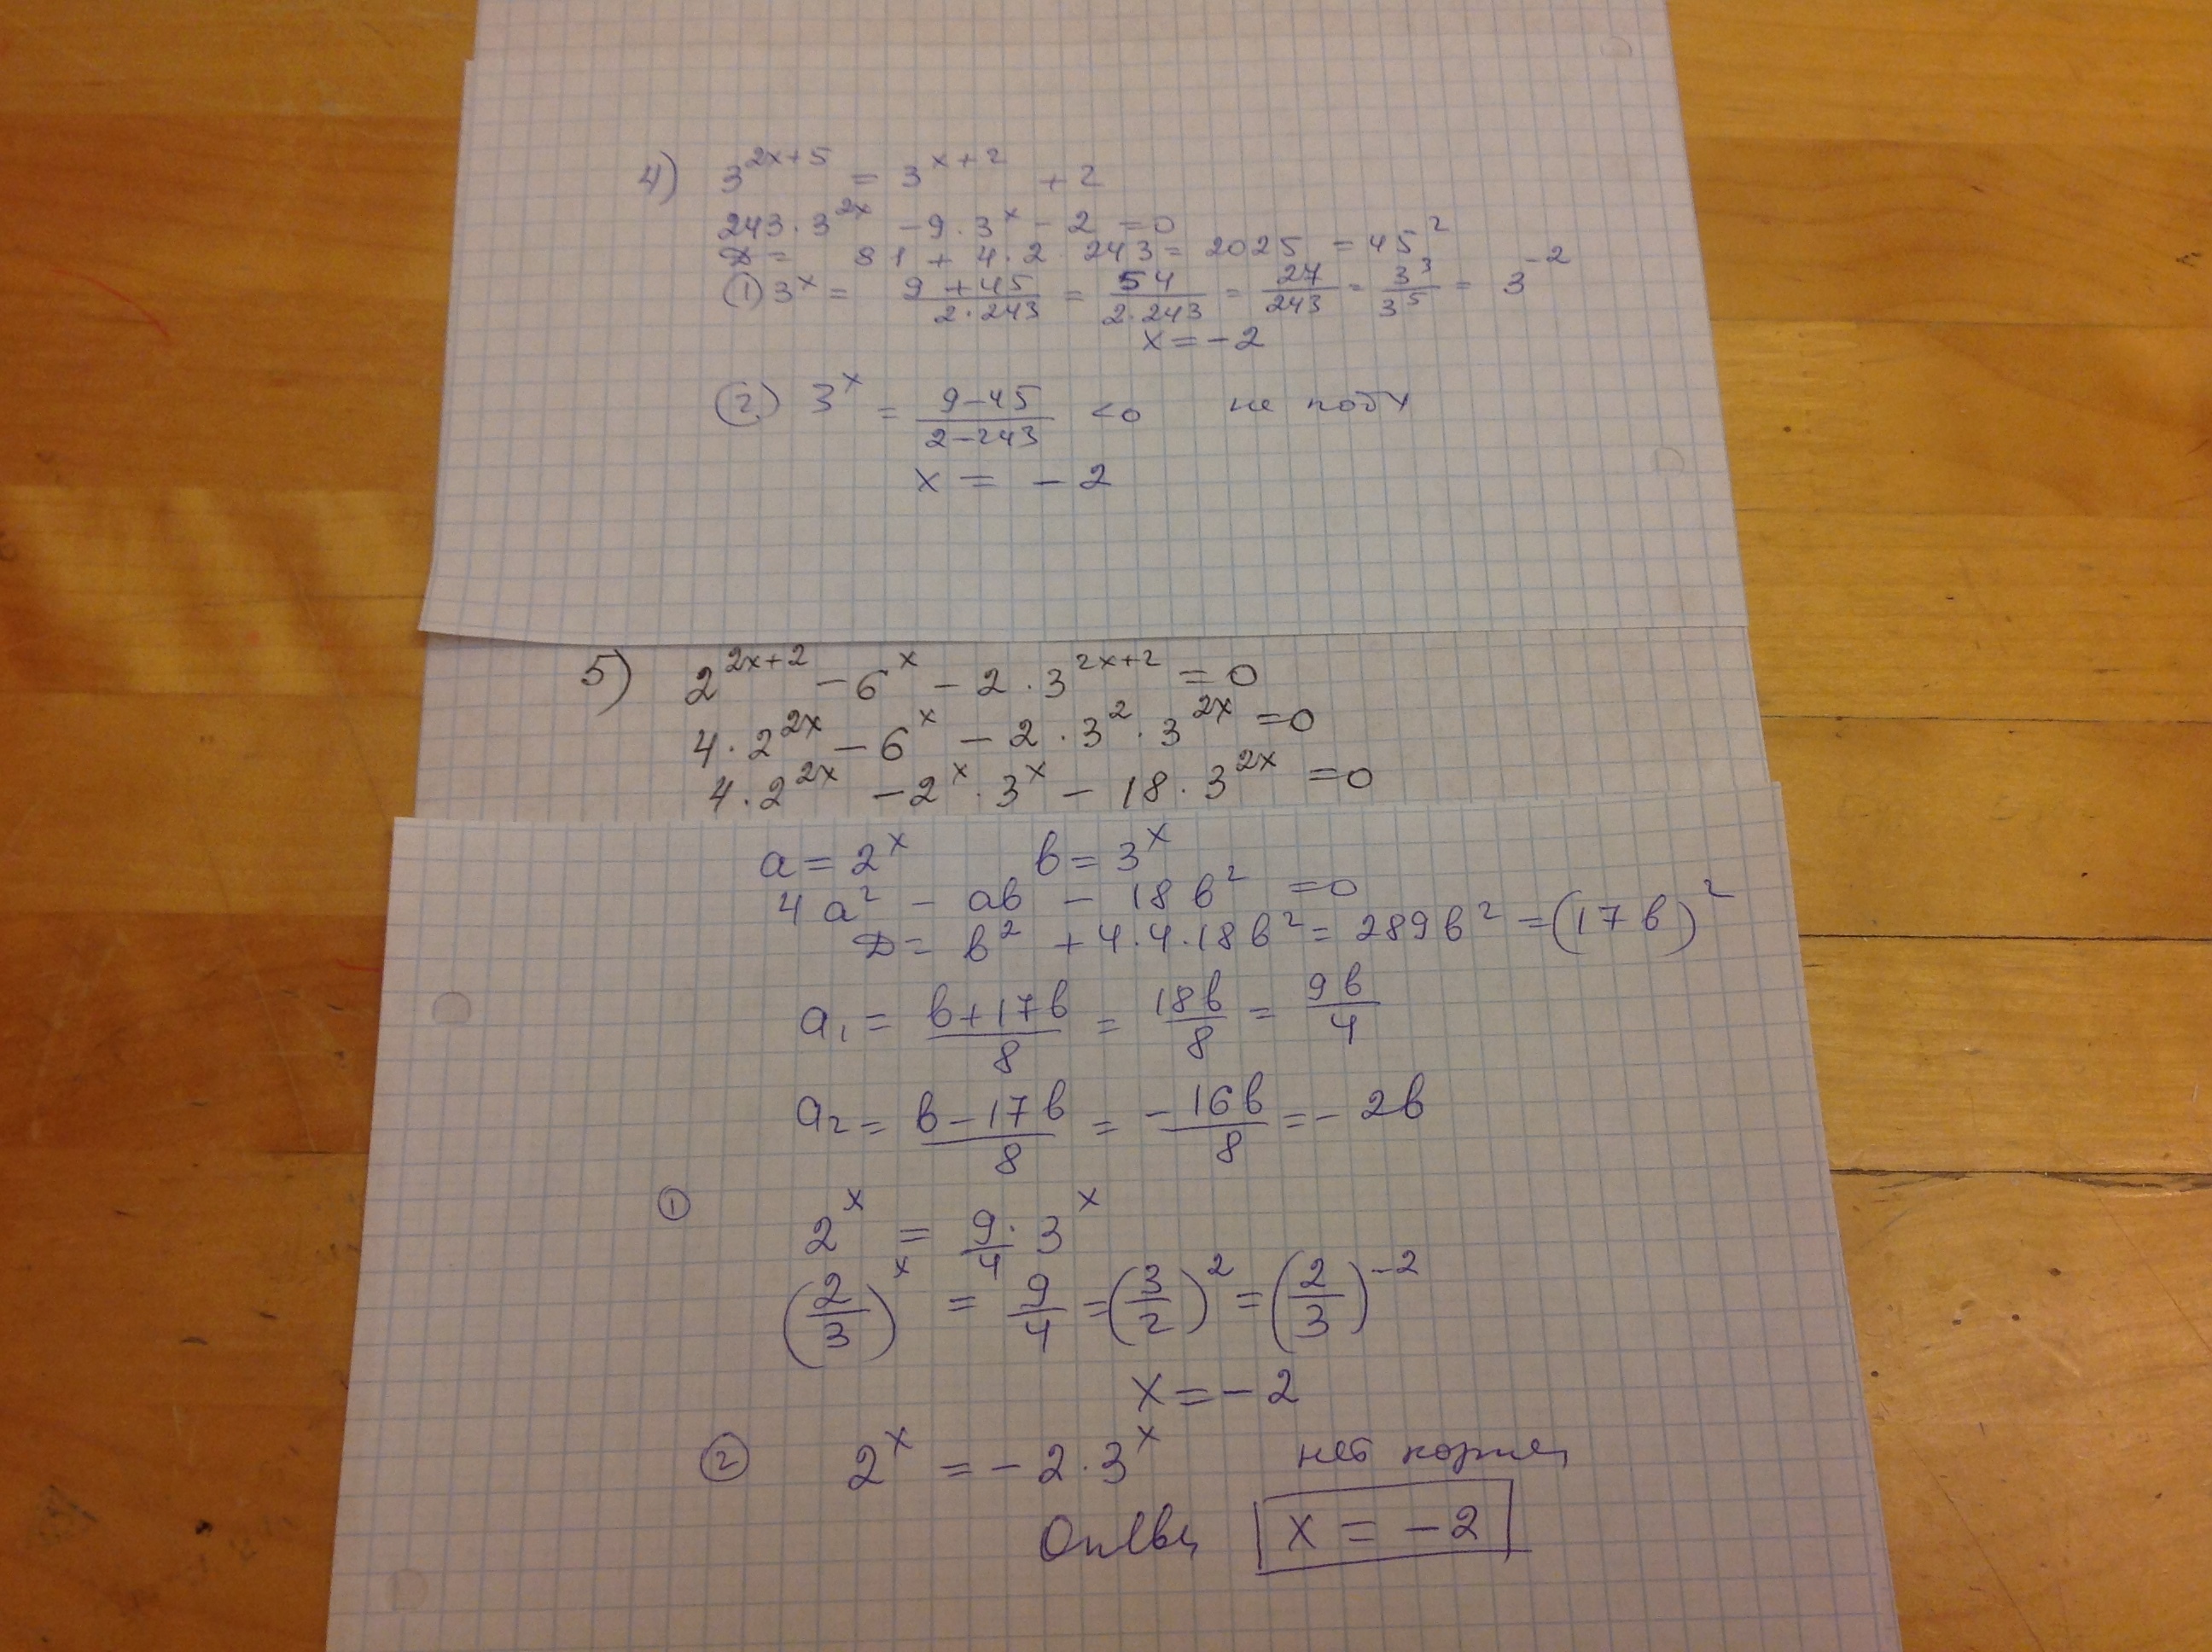 4) 3^{2x+5} = 3^{x+2} + 2
243·3^{2x} - 9·3^x - 2 = 0
D = 81 + 4·2 243 = 2025 = 45^2
① 3^x = \frac{9+45}{2·243} = \frac{54}{2·243} = \frac{27}{243} = \frac{3^3}{3^5} = 3^{-2}
x = -2
②) 3^x = \frac{9-45}{2-243} <0 не подх
x = -2
5) 2^{2x+2} - 6^x - 2·3^{2x+2} = 0
4·2^{2x} - 6^x - 2·3^2·3^{2x} = 0
4·2^{2x} - 2^x·3^x - 18·3^{2x} = 0
a = 2^x b = 3^x
4a^2 - ab - 18b^2 = 0
D = b^2 + 4·4·18b^2 = 289b^2 = (17b)^2
a_1 = \frac{b+17b}{8} = \frac{18b}{8} = \frac{9b}{4}
a_2 = \frac{b-17b}{8} = -\frac{16b}{8} = -2b
① 2^x = \frac{9}{4}·3^x
(\frac{2}{3})^x = \frac{9}{4} = (\frac{3}{2})^2 = (\frac{2}{3})^{-2}
x = -2
② 2^x = -2·3^x нет корней
Ответ x = -2